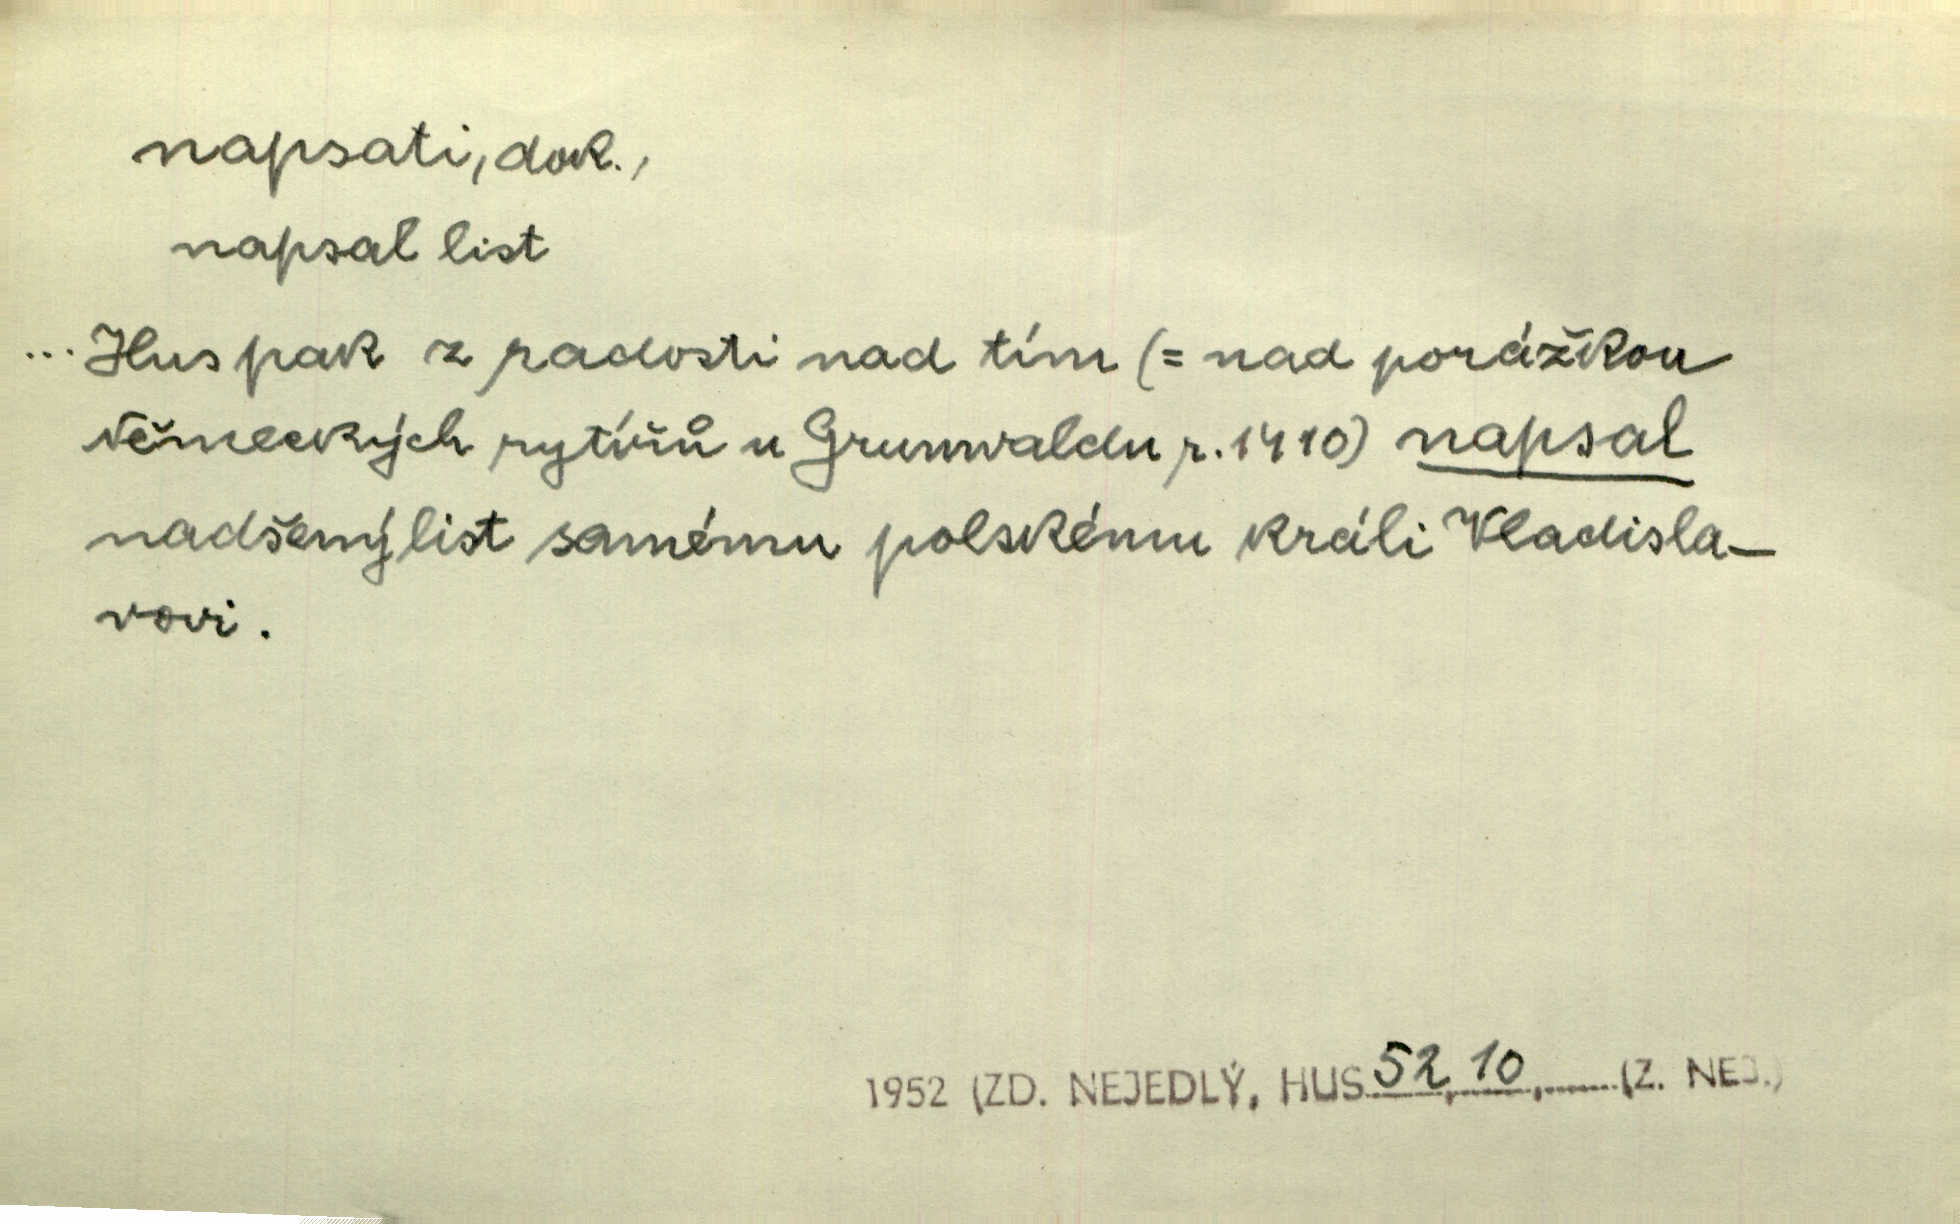 napsati, dok.,
napsal list
... Hus pak z radosti nad tím (= nad porážkou
německých rytířů u Grunwaldu r. 1410) napsal
nadšený list samému polskému králi Vladisla-
vovi.
1952 (ZD. NEJEDLÝ, HUS 52, 10, ....... (Z. NEJ.)